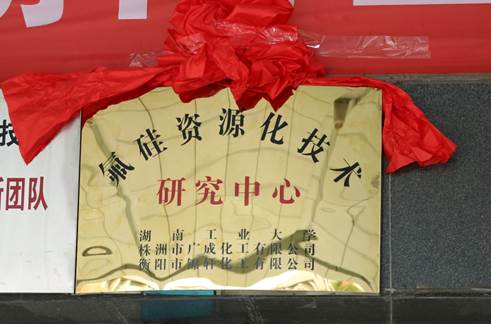 氟硅资源化技术
研究中心
湖南工业大学
株洲市广成化工有限公司
衡阳市锦轩化工有限公司
新团队